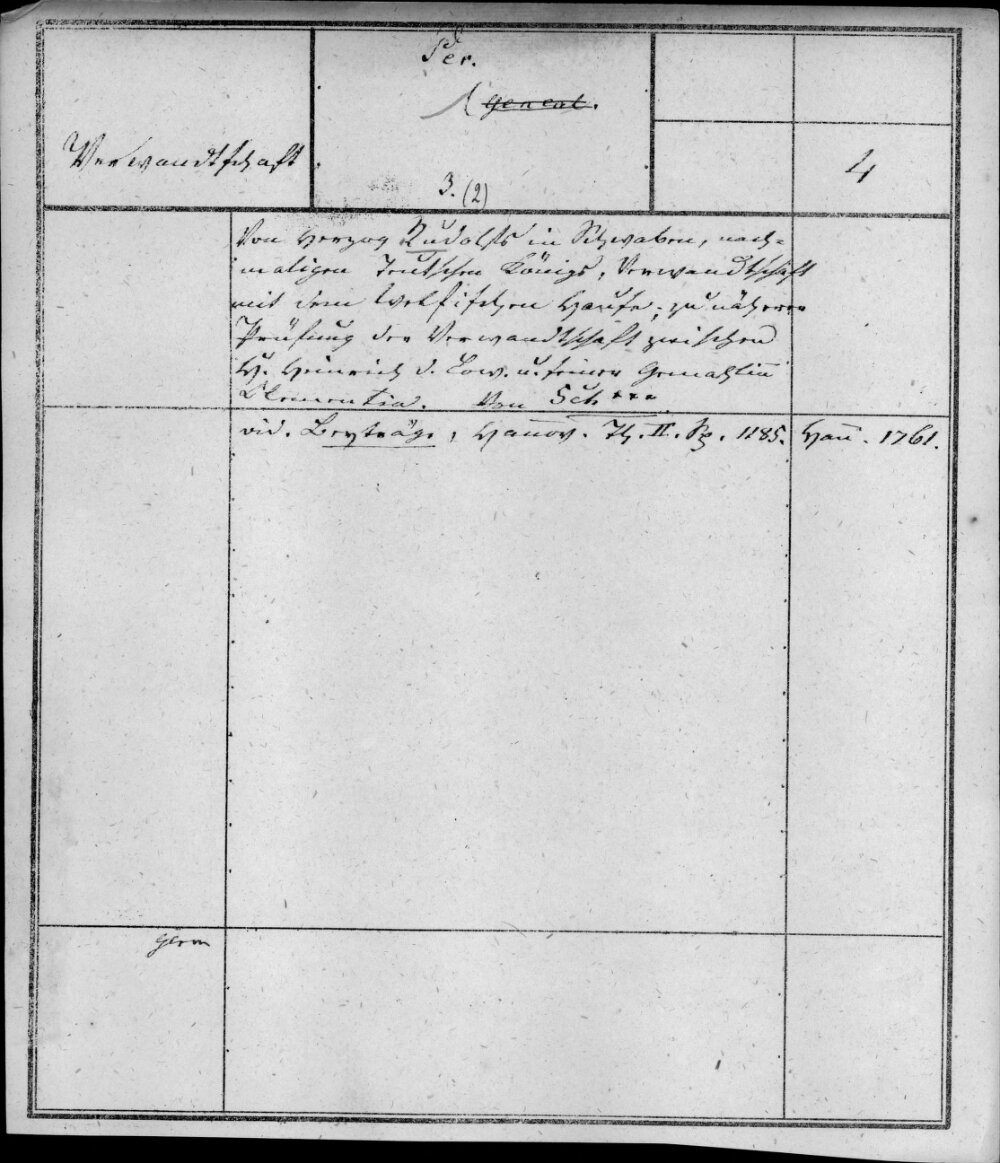 Per.
Geneal.
Verwandtschaft
4
3. (2)
Von Herzog Rudolfs in Schwaben, nach-
maligen Teutschen Königs, Verwandtschaft
mit dem Welfischen Hause, zu näherer
Prüfung der Verwandtschaft zwischen
H. Heinrich d. Löw. u. seiner Gemahlin̅
Clementia. Von Sch***
vid. Beyträge, Hanov. Th. II. Sp. 1185. Han̅. 1761.
Germ